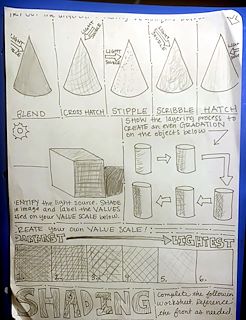 LIGHT SOURCE
BLEND
CROSS HATCH
STIPPLE
SCRIBBLE
HATCH
SHOW the LAYERING PROCESS to
CREATE an EVEN GRADATION
on the OBJECTS below
IDENTIFY the light source. SHADE
image and label the VALUES
based on your VALUE SCALE below.
CREATE your own VALUE SCALE!
DARKEST
LIGHTEST
2.
3.
4.
5.
6.
SHADING
Complete the following
worksheet. Reference
the front as needed.